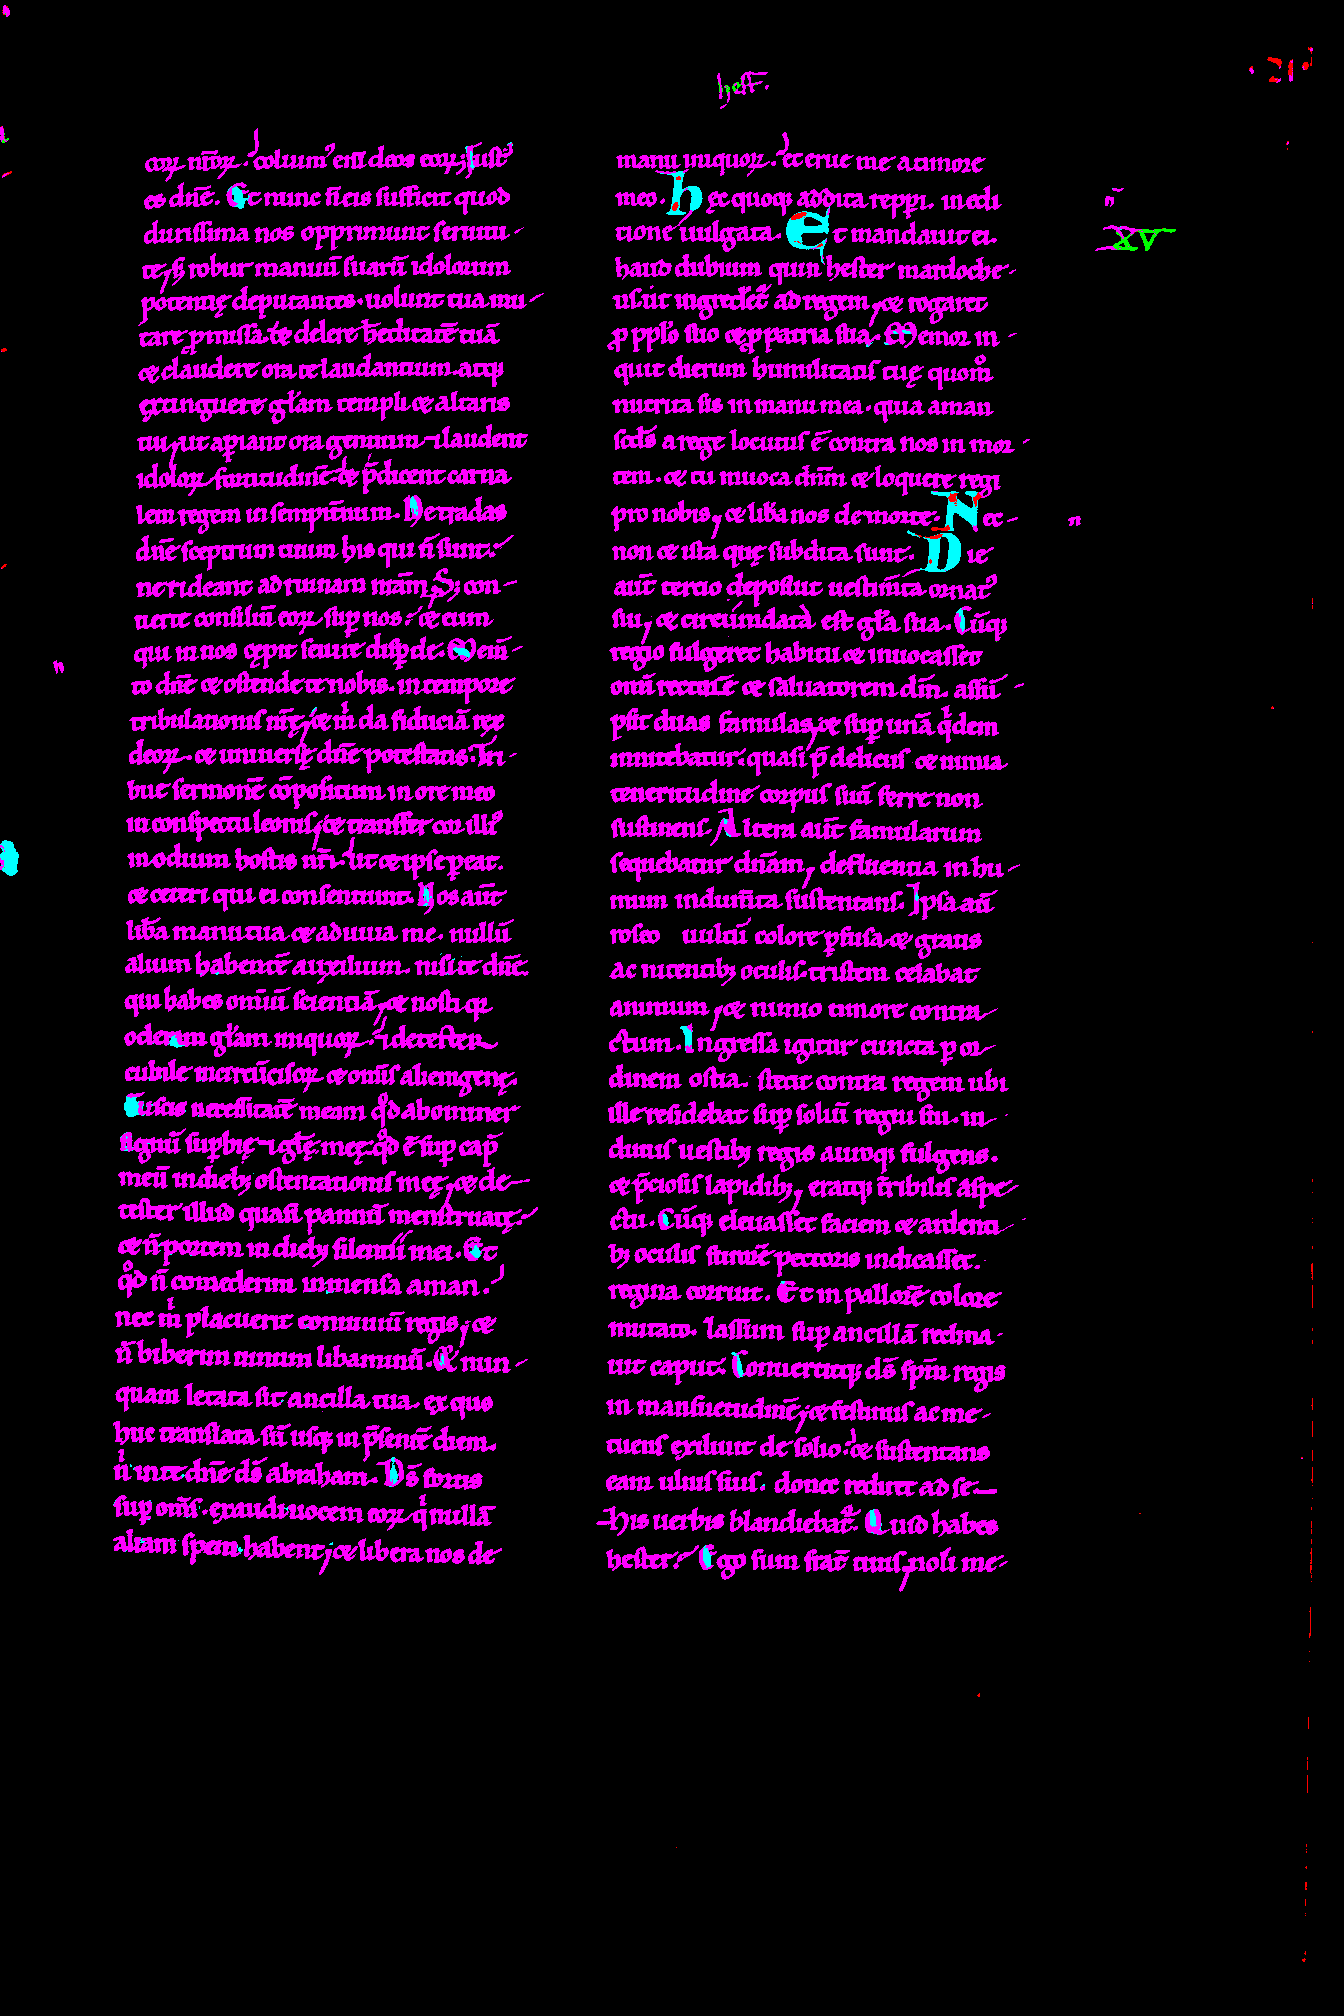 hest.
coꝝ nr̄oꝝ. coluim᷒ eni deos eoꝝ; Iust᷒
es dn̄e. Et nunc n̄ eis sufficit quod
durissima nos opprimunt seruitu-
te, sꝫ robur manuū suarū idolorum
potentię deputantes. uolunt tua mu-
tare ꝓmissa. ⁊ delere hęditatē tuā
et claudere ora te laudantium. atqꝫ
extinguere gl̄am templi et altaris
tui, ut aperiant ora gentium ⁊ laudent
idoloꝝ fortitudinē. et p̄dicent carna
lem regem in sempit̄num. Ne tradas
dn̄e sceptrum tuum his qui n̄ sunt.
ne rideant ad ruinam nr̄am. Sꝫ con-
uerte consiliū eoꝝ suꝑ nos. et eum
qui in nos cępit seuire disꝑde. Mem̄-
to dn̄e et ostende te nobis. in tempore
tribulationis nr̄ę, et m̄ da fiduciā rex
deoꝝ. et uniuersę dn̄e potestatis. Tri-
bue sermonē cōpositum in ore meo
in conspectu leonis, et transfer cor illi᷒
in odium hostis nr̄i. ut et ipse ꝑeat.
et ceteri qui ei consentiunt. Nos aūt
lib̄a manu tua et adiuua me. nullū
alium habentē auxilium. nisi te dn̄e.
qui habes omniū scientiā, et nosti qꝛ
oderim gl̄am iniquoꝝ. ⁊ detester
cubile incircūcisoꝝ et om̄is alienigenę.
Tu scis necessitatē meam qd̄ abominer
signū suꝑbię ⁊ gl̄ę meę. qd̄ ē suꝑ cap̄
meū in diebꝫ ostentationis meę, et de-
tester illud quasi pannū menstruatę.
et n̄ portem in diebꝫ silentii mei. Et
qd̄ n̄ comederim in mensa aman.
nec m̄ placuerit conuiuiū regis, et
n̄ biberim uinum libaminū. Et nun-
quam letata sit ancilla tua. ex quo
huc translata sū usqꝫ in p̄sentē diem.
n̄ in te dn̄e ds̄ abraham. Ds̄ fortis
suꝑ om̄s. exaudi uocem eoꝝ q̄ nullā
aliam spem habent, et libera nos de
manu iniquoꝝ. et erue me a timore
meo. hęc quoqꝫ addita repperi. in edi
tione uulgata. Et mandauit ei.
haud dubium quin hester mardoche-
us. ut ingrederet᷒ ad regem, et rogaret
ꝓ ppl̄o suo et ꝓ patria sua. Memor in-
quit dierum humilitatis tuę quom̊
nutrita sis in manu mea. quia aman
scd̄s a rege locutus ē contra nos in mor-
tem. et tu inuoca dn̄m et loquere regi
pro nobis, et lib̄a nos de morte. Nec-
non et ista quę subdita sunt. Die
aūt tercio deposuit uestim̄ta ornat᷒
sui, et circūmdata est gl̄a sua. Cūqꝫ
regio fulgeret habitu et inuocasset
om̄iū rectorē et saluatorem dm̄. assū-
psit duas famulas, et suꝑ unā qͥdem
innitebatur. quasi p̄ deliciis et nimia
teneritudine corpus suū ferre non
sustinens. Altera aūt famularum
sequebatur dn̄am, defluentia in hu-
mum indum̄ta sustentans. Ipsa aūt
roseo uultū colore ꝑfusa. et gratis
ac nitentibꝫ oculis. tristem celabat
animum, et nimio timore contra
ctum. Ingressa igitur cuncta ꝑ or-
dinem ostia. stetit contra regem ubi
ille residebat suꝑ soliū regni sui. in-
dutus uestibꝫ regis auroqꝫ fulgens.
et p̄ciosis lapidibꝫ, eratqꝫ tr̄ribilis aspe-
ctu. Cūqꝫ eleuasset faciem et ardenti-
bꝫ oculis furorē pectoris indicasset.
regina corruit. Et in pallorē colore
mutato. lassum suꝑ ancillā reclina-
uit caput. Conuertitqꝫ ds̄ spm̄ regis
in mansuetudinē, et festinus ac me-
tuens exiliuit de solio. et sustentans
eam ulnis suis. donec rediret ad se-
his uerbis blandiebat᷒. Quid habes
hester? Ego sum frat̄ tuus, noli me-
n̄
XV
n
n